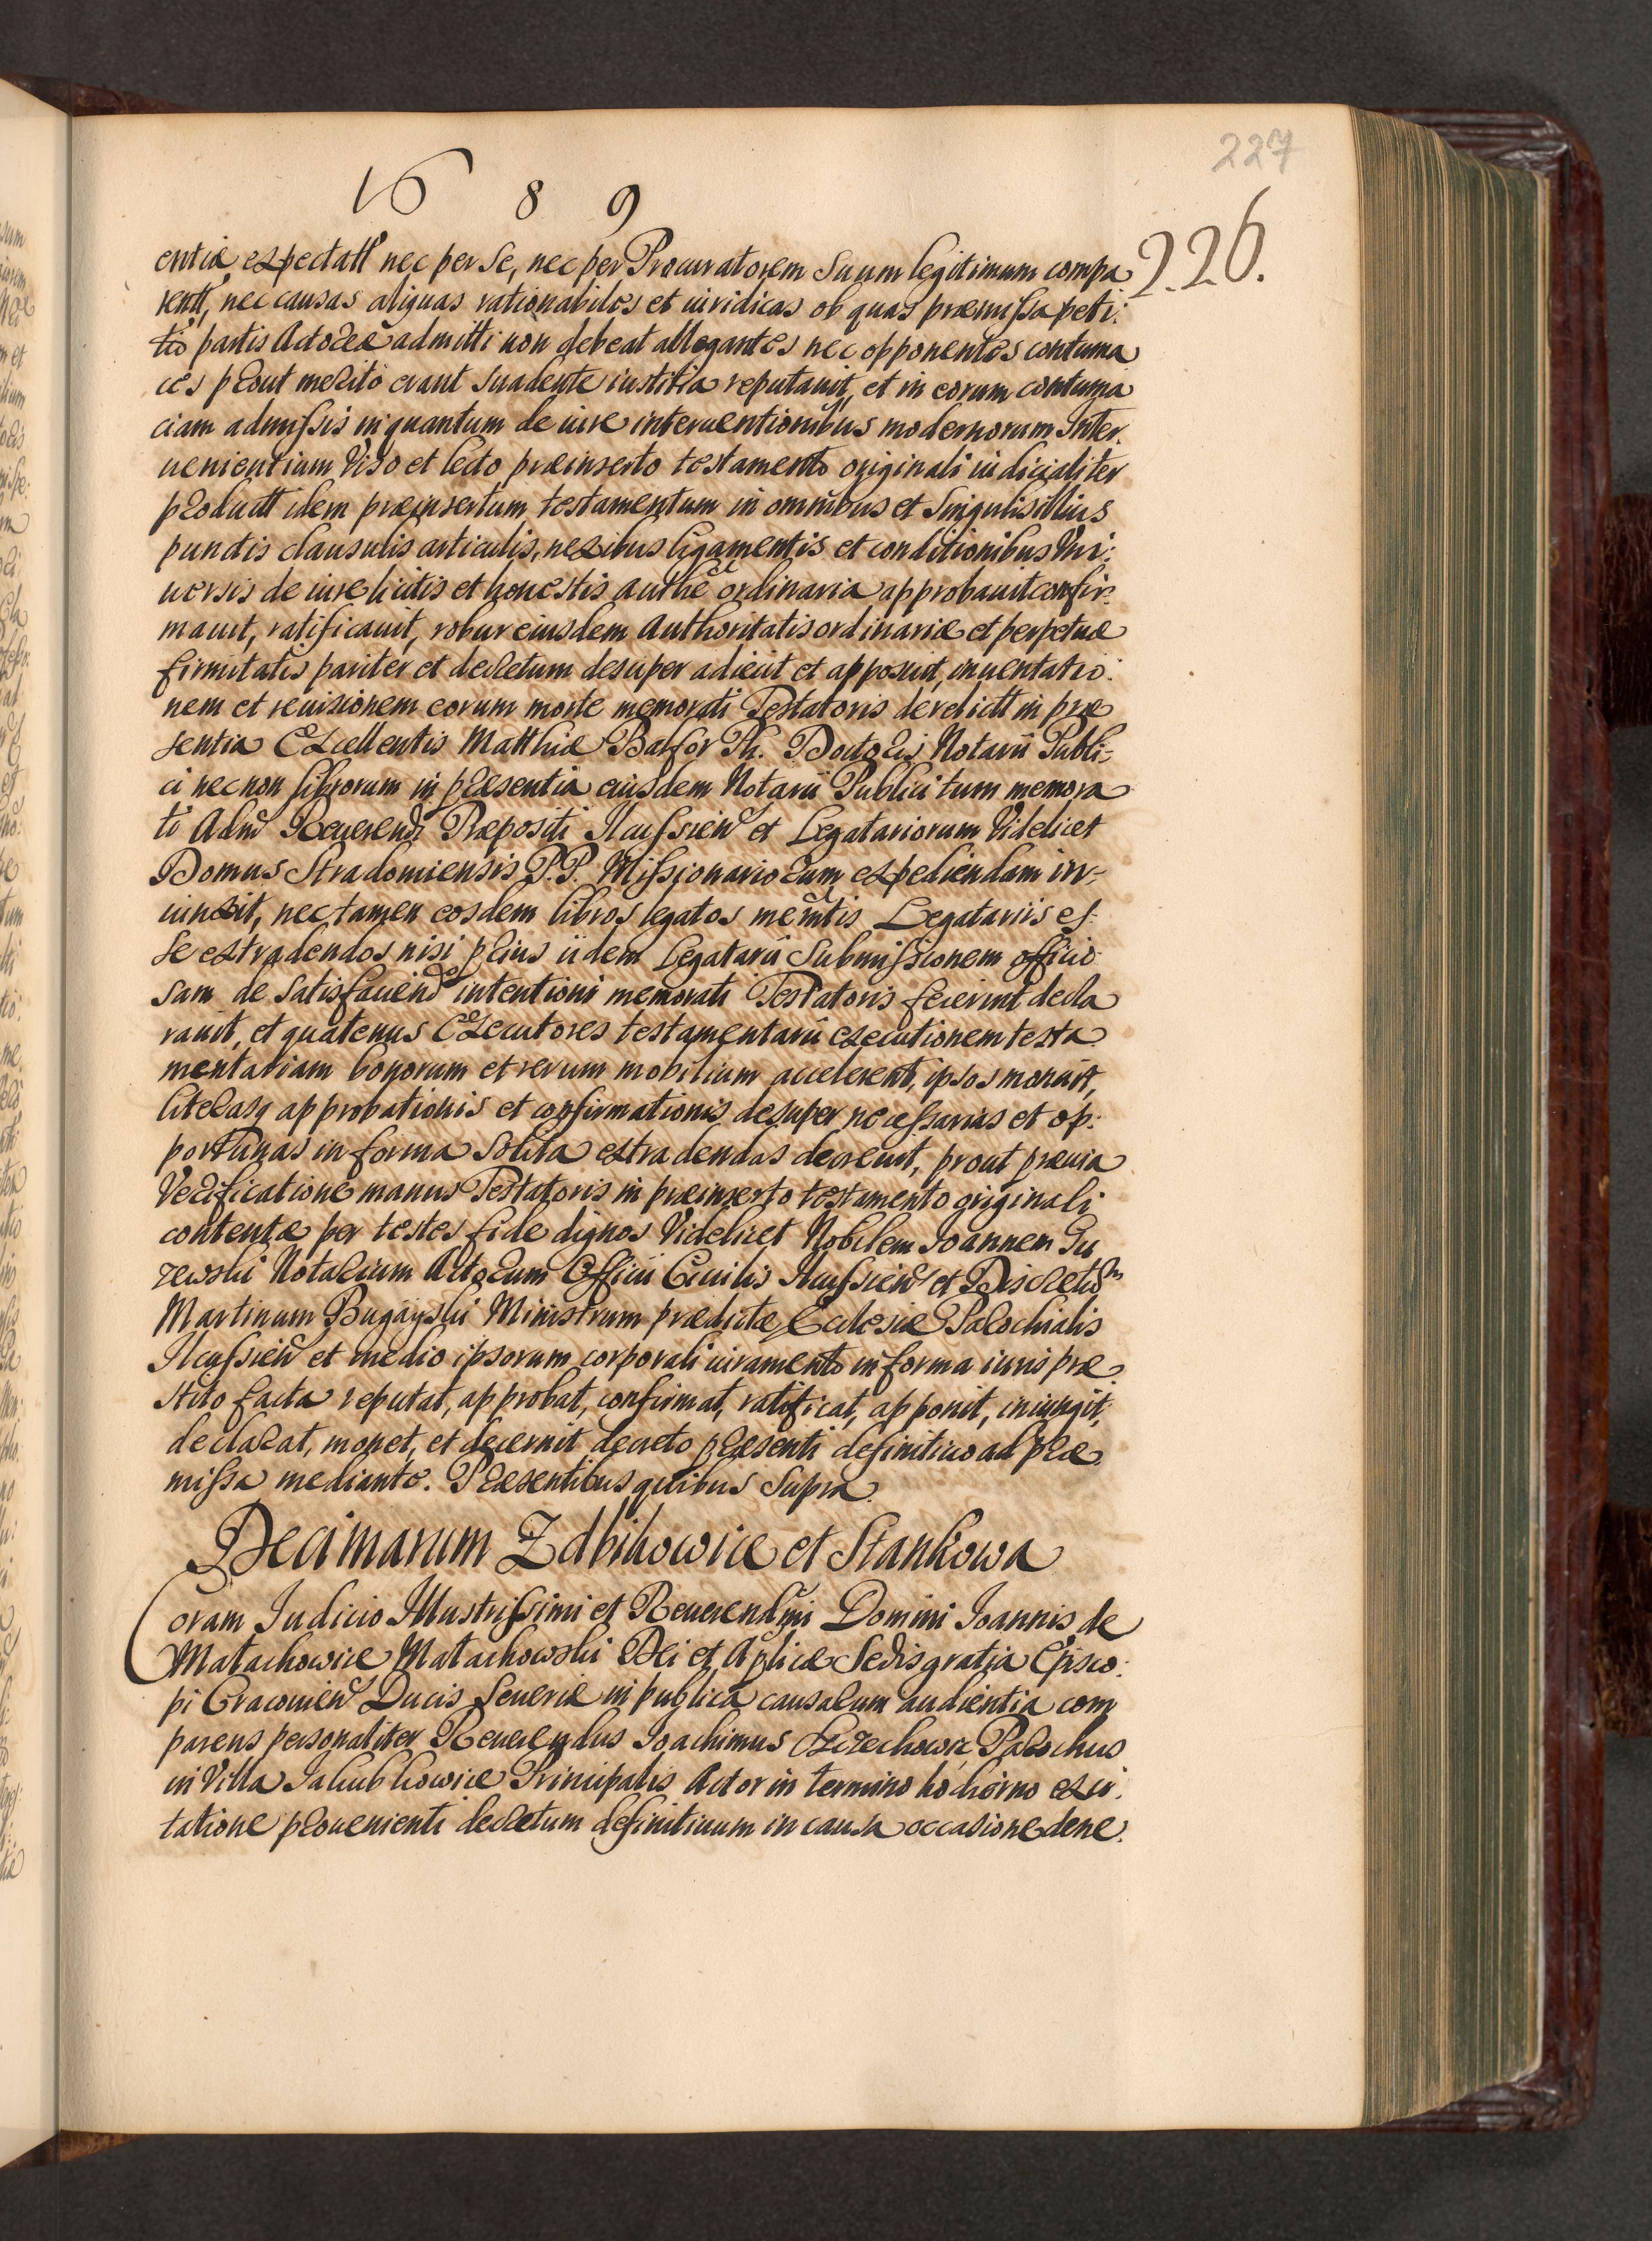 227
1689
226.
entiæ expectatt nec per se, nec per Procuratorem suum legitimum compa
rentt, nec causas aliquas rationabiles et iuridicas ob quas præmissa peti:
tio partis Actoreæ admitti non debeat allegantes nec opponentes contuma
ces prout merito erant suadente iustitia reputauit, et in eorum contuma
ciam admissis inquantum de iure interuentionibus modernorum Inter:
uenientium Viso et lecto præinserto testamento originali iudicialiter
productt idem præinsertum testamentum in omnibus et singulis illius
punctis clausulis articulis, nexibus ligamentis et conditionibus Vni:
uersis de iure licitis et honestis authe ordinaria approbauit confir:
mauit, ratificauit, robur eiusdem Authoritatis ordinariæ et perpetuæ
firmitatis pariter et decretum desuper adiecit et apposuit, inuentatio:
nem et reuisionem eorum morte memorati Testatoris derelictt in præ
sentia Excellentis Matthiæ Balfor Ph. Doctoris Notarii Publi:
ci nec non librorum in præsentia eiusdem Notarii Publici tum memora
ti Adm Reuerendi Præpositi Ilcussien et Legatariorum Videlicet
Domus Stradomiensis P.P. Missionariorum expediendam in:
iunxit, nec tamen eosdem libros legatos memtis Legatariis es:
se extradendos nisi prius iidem Legatarii submissionem officio:
sam de satisfaciendo intentioni memorati Testatoris fecerint decla
rauit, et quatenus Executores testamentarii executionem testa
mentariam bonorum et rerum mobilium accelerent, ipsos monuit,
literasq approbationis et confirmationis desuper necessarias et op:
portunas in forma solita extradendas decreuit, prout præuia
Verificatione manus Testatoris in præinserto testamento originali
contentæ per testes fide dignos Videlicet Nobilem Joannem Gu
rewski Notarium Actorum Officii Ciuilis Ilcussien et Discretum
Martinum Bugayski Ministrum prædictæ Ecclesiæ Parochialis
Ilcussien et medio ipsorum corporali iuramento in forma iuris præ:
stito facta reputat, approbat, confirmat, ratificat, apponit, iniungit,
declarat, monet, et decernit decreto præsenti definitiuo ad præ
missa mediante. Præsentibus quibus supra.
Decimarum Zdbikowice et Stankowa
Coram Judicio Illustrissimi et Reuerendmi Domini Joannis de
Małachowice Małachowski Dei et Aplicæ Sedis gratia Episco:
pi Cracouien Ducis Seueriæ in publica causarum audientia com
parens personaliter Reuerendus Joachimus Parochus
in Villa Jakubkowice Principalis Actor in termino hodierno ex ci:
tatione proueniente decretum definitiuum in causa occasione dene: